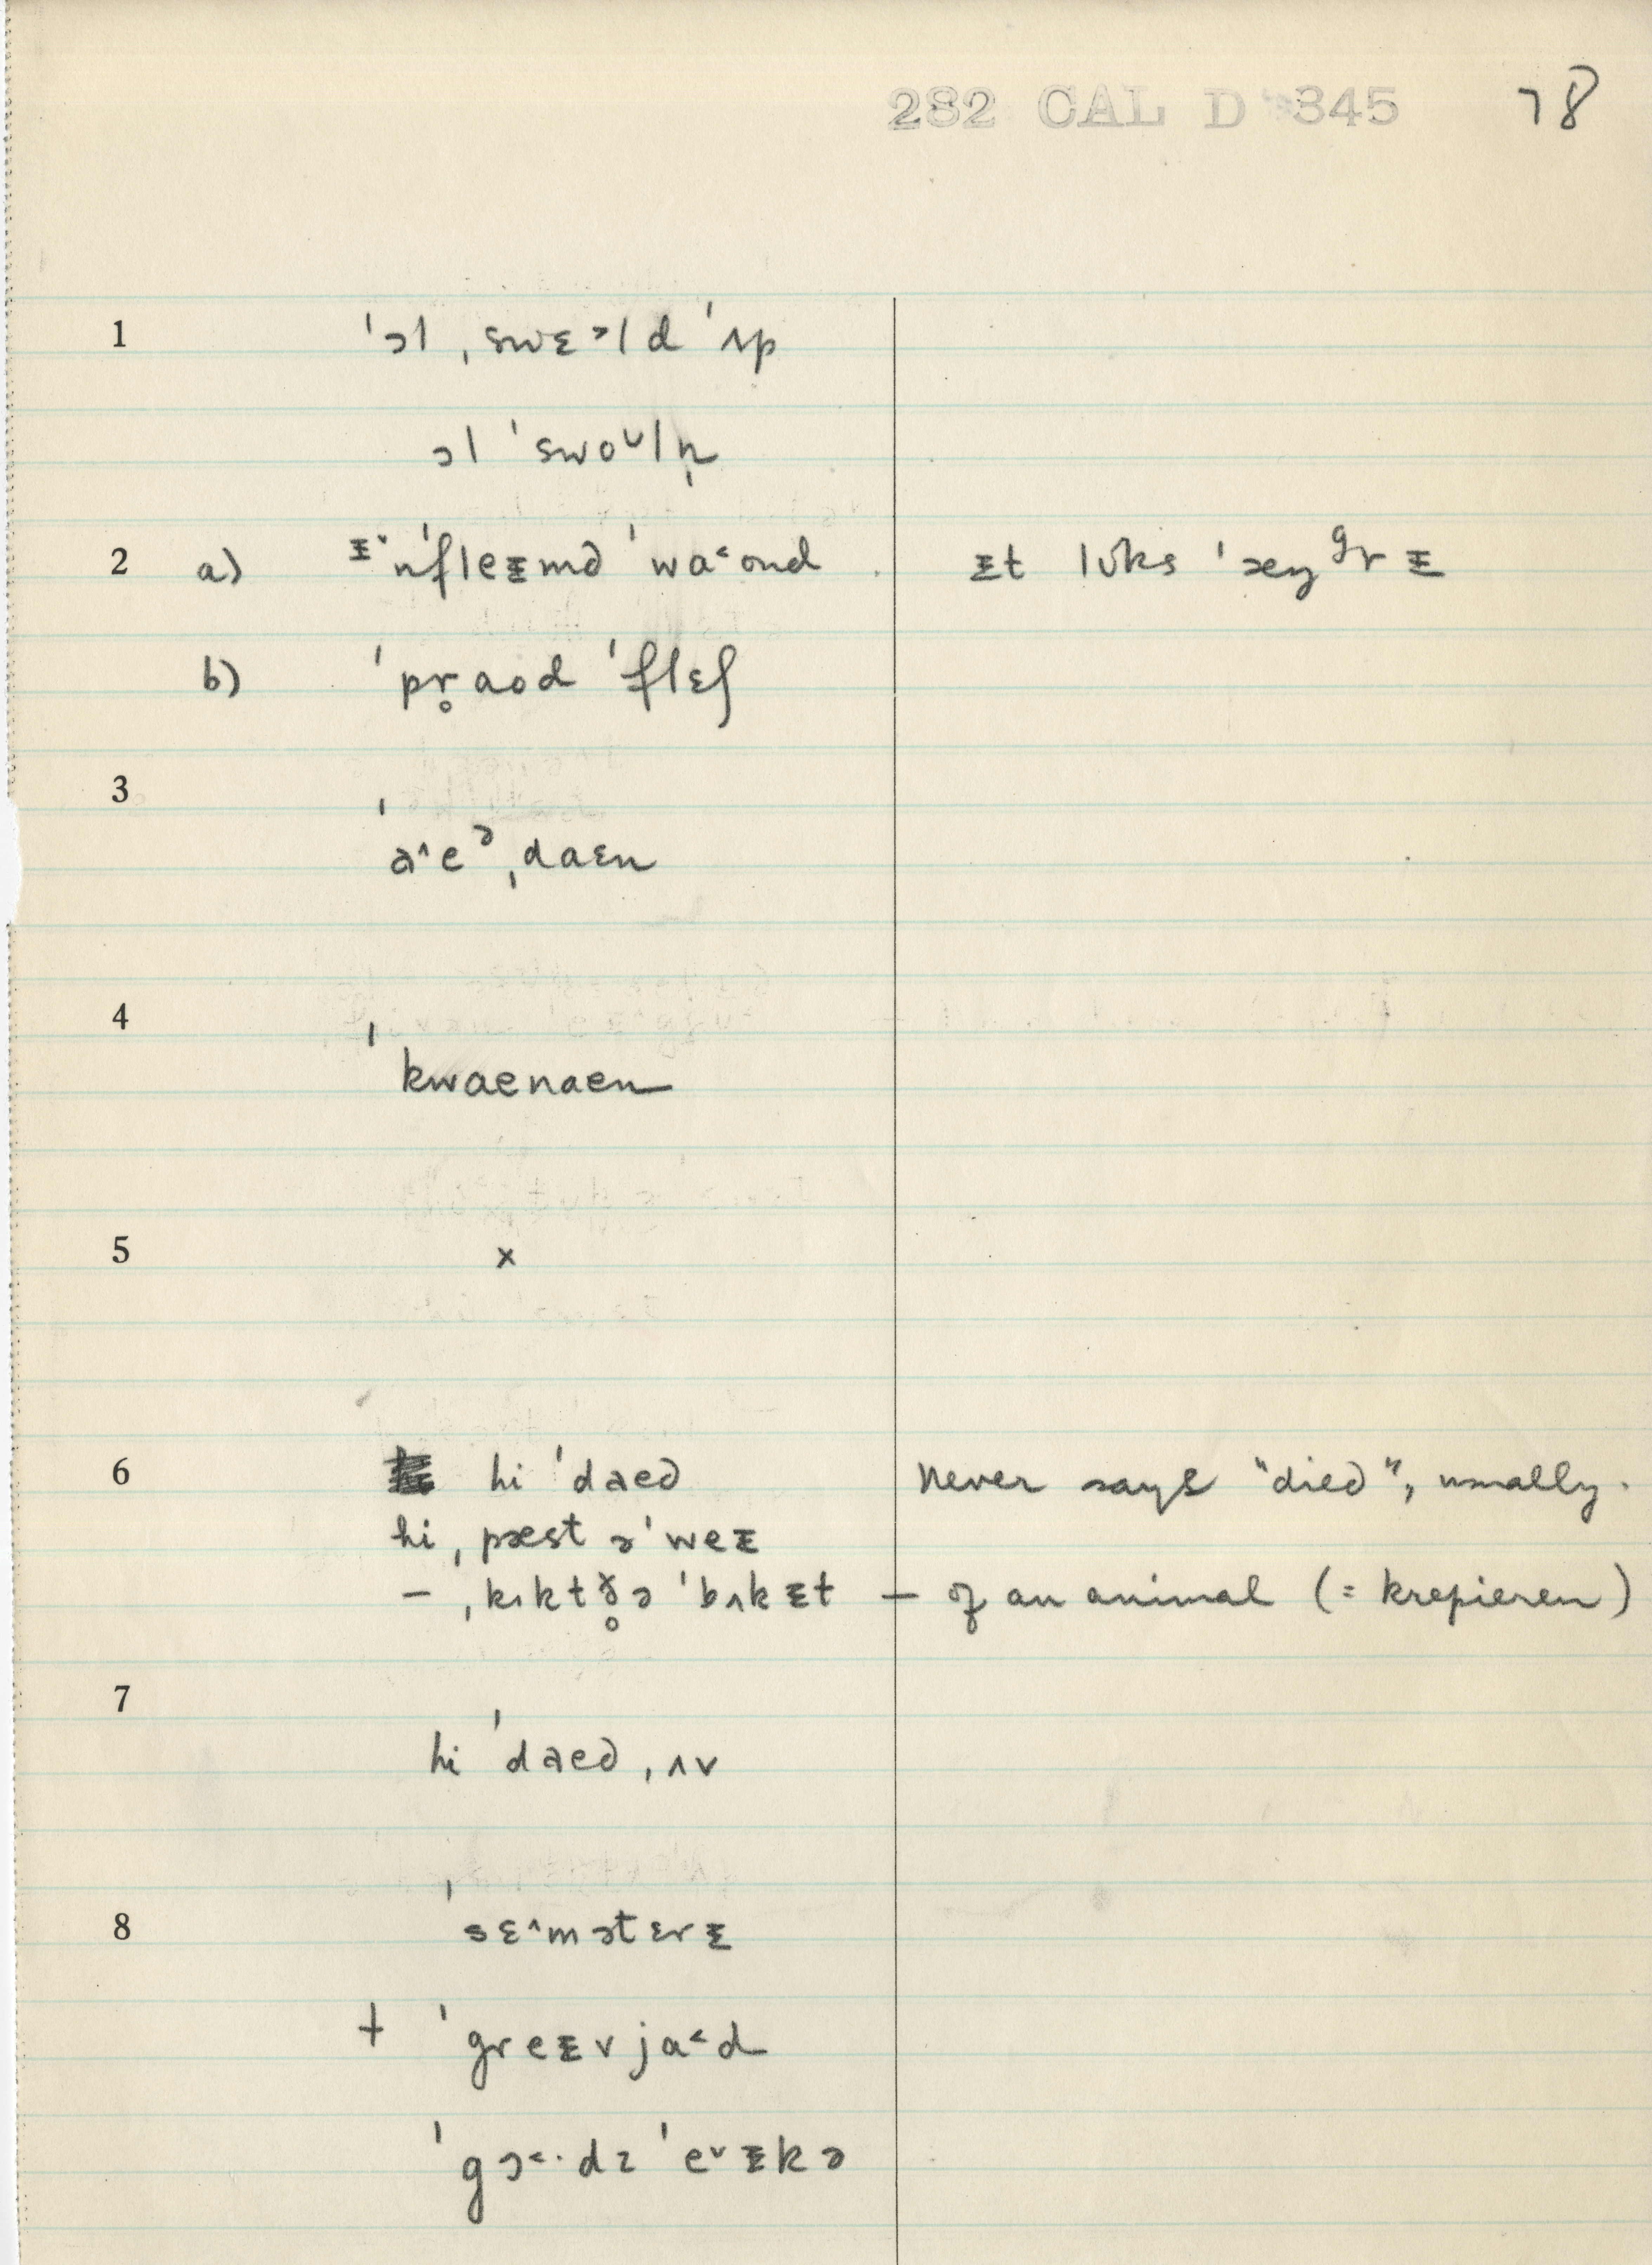 282 CAL D 345 78
1 ˈɔl ˌswɛᵊld ˈʌp
ɔl ˈswoᶷln̩
2 a) ᵻ˅nˈfleᵻmd ˈwa˂ond ᵻt lʊks ˈæŋᵍrᵻ
b) ˈpr̥aod ˈflɛʃ
3 ˈa˄eᵊˌdaɛn
4 ˈkwaenaen
5 x
6 hi ˈdaed Never says "died", usually.
hi ˌpæst əˈweᵻ
– ˌkɪkt ð̥ə ˈbʌkᵻt – of an animal (= krepieren)
7 hi ˈdaed ˌʌv
8 ˈsɛ˄mətɛrᵻ
+ ˈgreᵻvja˂d
ˈgɔ˂·dz ˈe˅ᵻkə